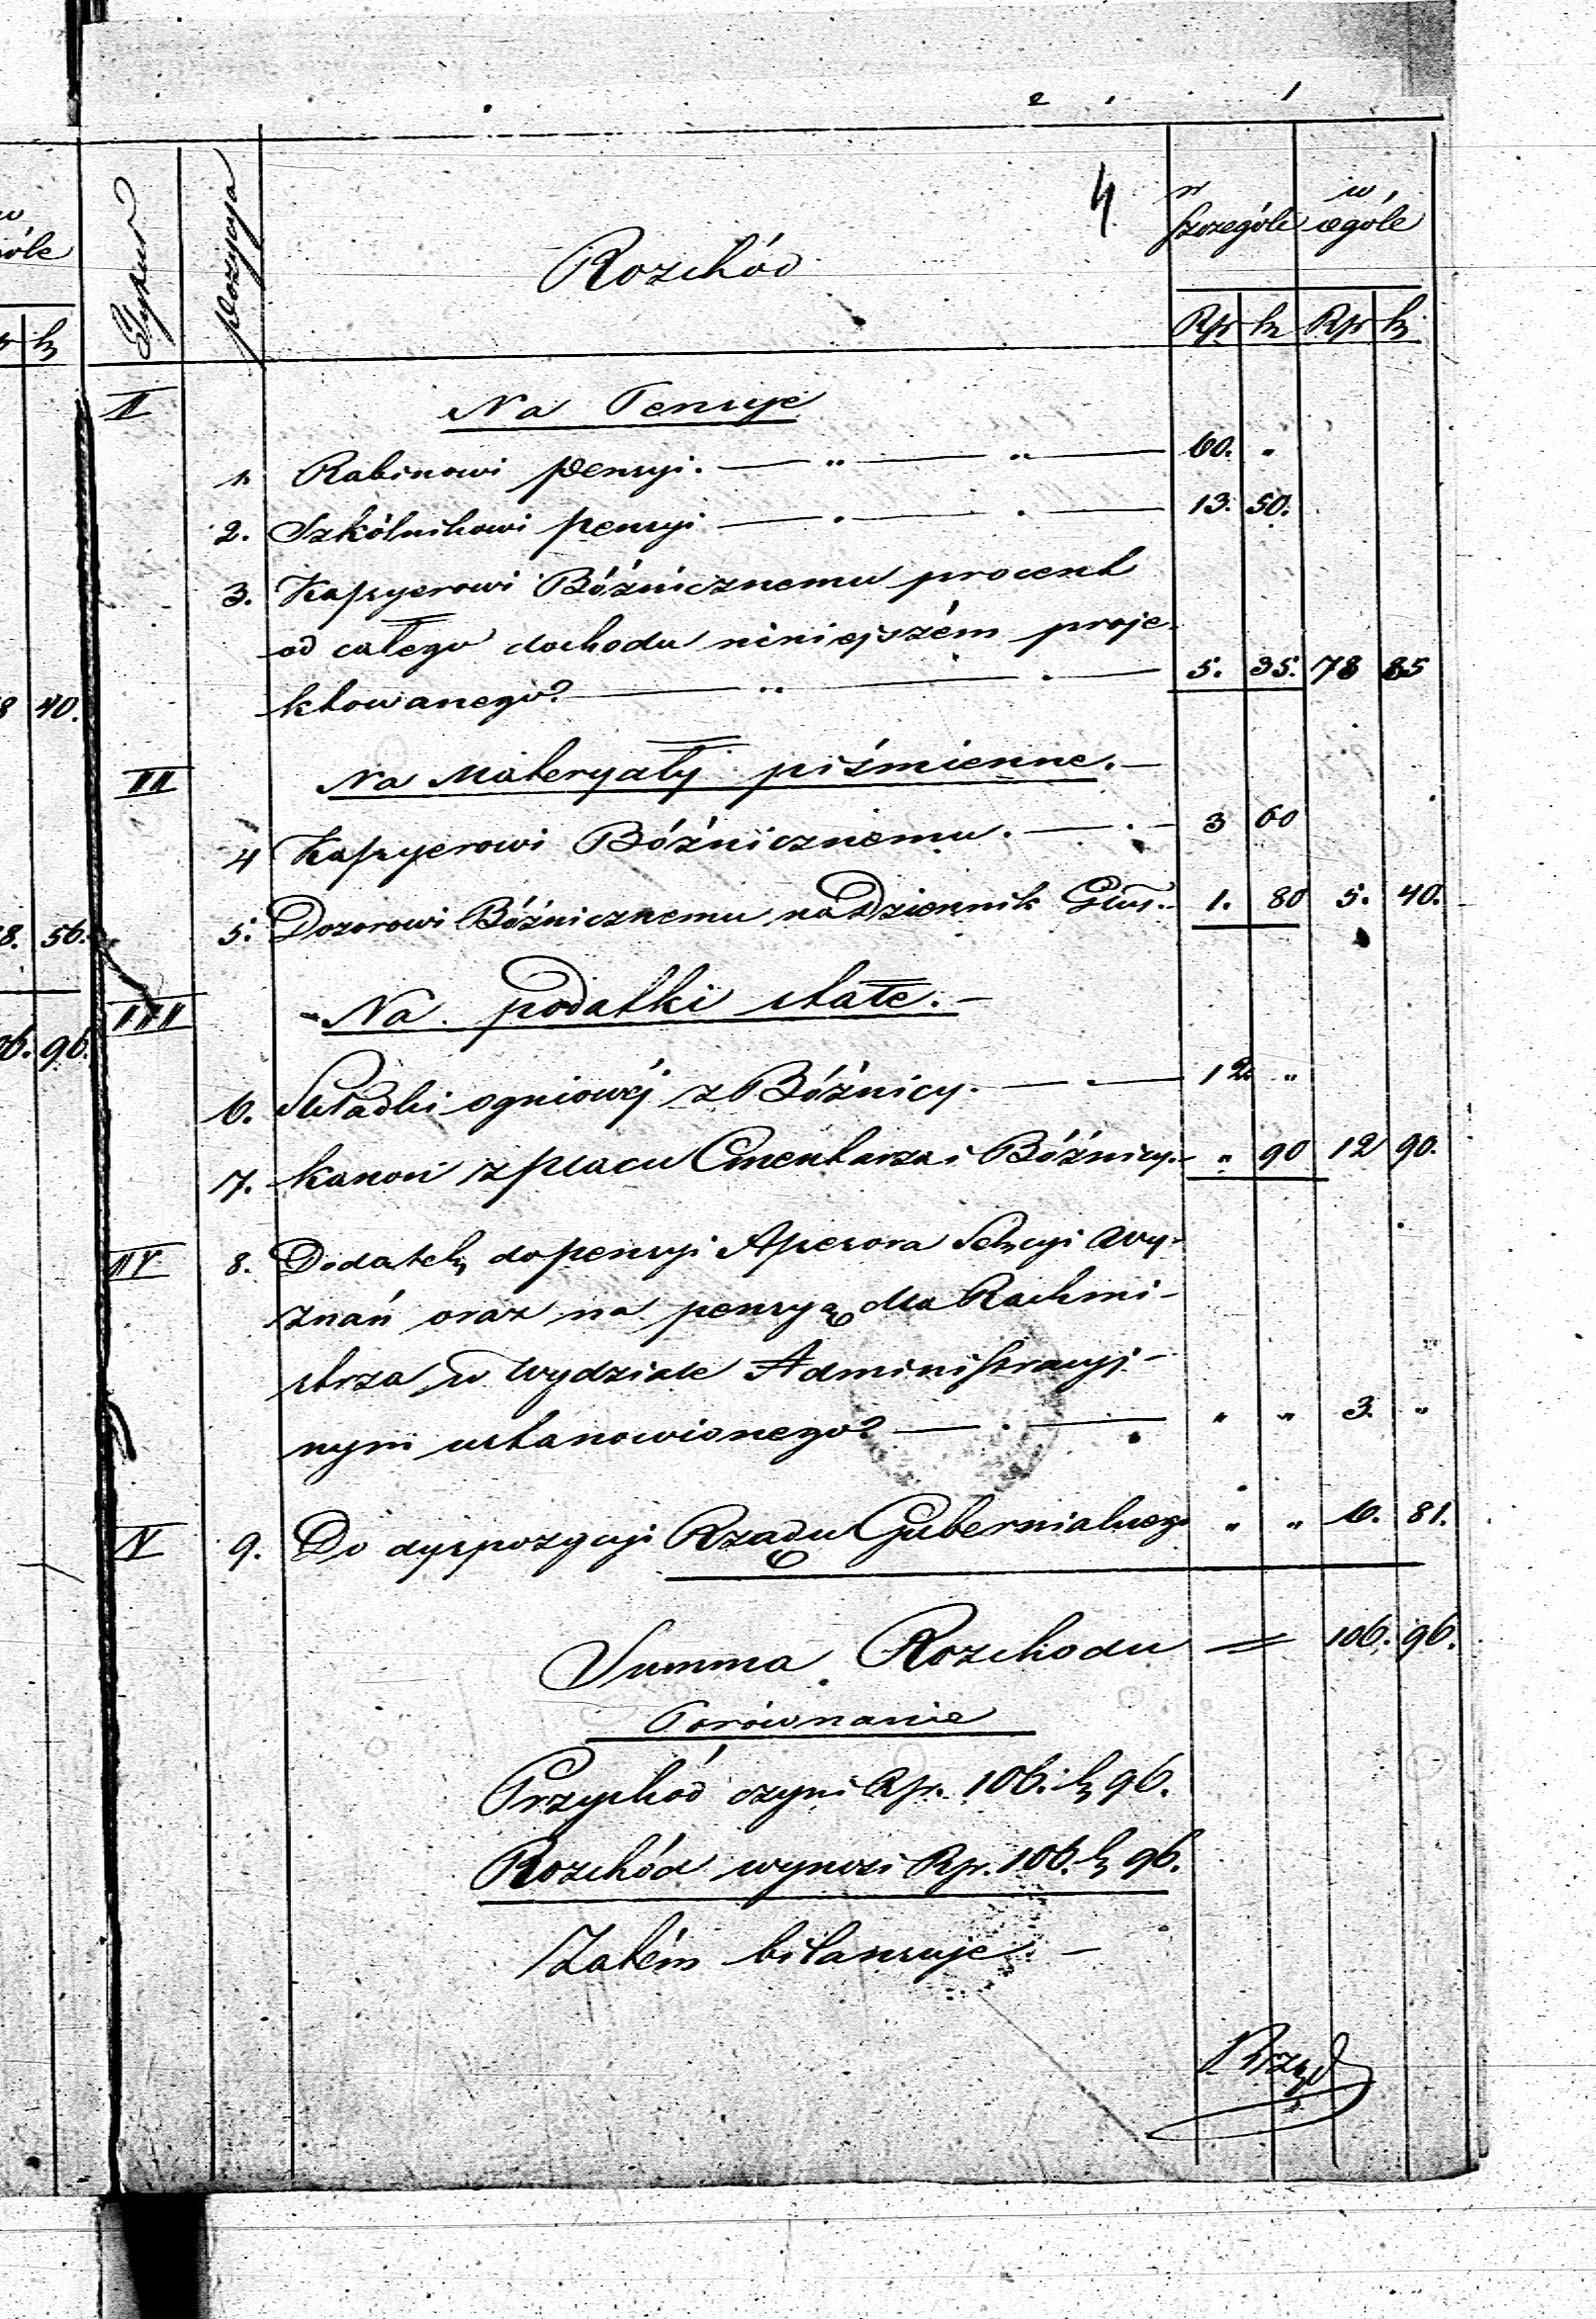 4
w w
óle szczególe ogóle
Tytuł Pozycja Rozchód
k Rsr k Rsr k
I Na Pensye
1. Rabinowi pensyi. — „ — „ — 60. „
2. Szkólnikowi pensyi — . — . — 13. 50.
3. Kassyerowi Bóźnicznemu procent
od całego dochodu niniejszém proje-
40. ktowanego — „ — . — 5. 35. 78 85
II Na Materyały piśmienne. —
4 Kassyerowi Bóźnicznemu. — . — 3 60
8. 56. 5. Dozorowi Bóźnicznemu na Dziennik Gub. 1. 80 5. 40.
III Na podatki stałe. —
96. 6. Składki ogniowéj z Bóźnicy. — . — 12 „
7. kanon z placu Cmentarza i Bóźnicy. — „ 90 12 90.
IV 8. Dodatek do pensyi Assesora Sekcyi Wy-
znań oraz na pensyą dla Rachmi-
strza w Wydziale Administracyj-
nym ustanowionego — . — „ „ 3. „
V 9. Do dyspozycyi Rządu Gubernialnego „ „ 6. 81.
Summa Rozchodu = 106. 96.
Porównanie
Przychód czyni Rsr. 106. k 96.
Rozchód wynosi Rsr. 106. k 96.
Zatém bilansuje. —